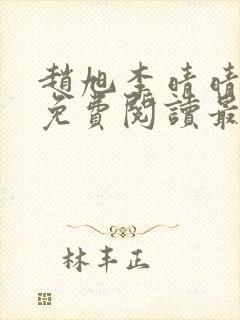 趙旭李晴晴
免費閱讀最
林丰正